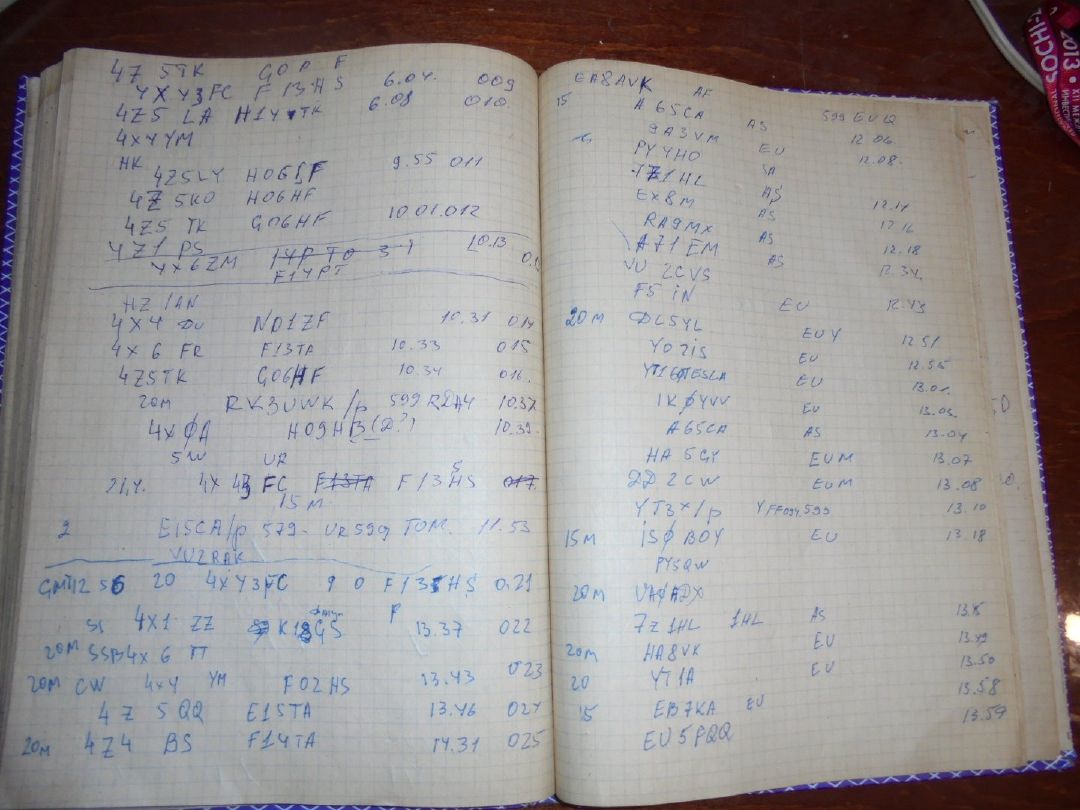 4Z 5TK G0 F
4X 43FC F13HS 6.04. 009
4Z5 LA H14TK 6.08 010.
4X4YM
HK
4Z5LY H06 F 9.55 011
4Z 5KO H06HF
4Z5 TK G06HF 10.01.012
4Z1 PS 10.13
4X6ZM F14PT
HZ 1AN
4X4 DU N01ZF 10.31 014
4X 6 FR F13TA 10.33 015
4Z5TK G06HF 10.34 016.
20m RK3UWK/p 599 RDA4 10.37
4X ØA H09HB(D?) 10.39.
5W UR
21.4. 4X 43 FC F13TA F13HS 017.
15 M
2 EI5CA/p 579- UR599 TOM. 11.53
VU2RAK
GMT12 56 20 4X43FC 9 0 F13HS 021
55 4X1 ZZ K18GS P 13.37 022
20M SSB4X6 TT
20M CW 4X4 YM F02HS 13.43 023
4Z 5QQ E15TA 13.46 024
20M 4Z4 BS F14TA 14.31 025
EA8AVK AF
15 A 65CA AS 599 EUQ
9A3VM EU 12.06.
PY4HO SA 12.08.
7Z1HL AS
EX8M AS 12.14
RA9MX AS 12.16
A71EM AS 12.18
VU 2CVS 12.34
F5 IN EU 12.43
20M DL5YL EUY 12.51
YO2IS EU 12.55
EU 13.01
IKØYVV EU 13.03.
A65CA AS 13.04
HA 5GY EUM 13.07
2CW EUM 13.08
YT3X/p YFF094.599 13.10
15M ISØBOY EU 13.18
PY5QW
20M UAØADX
7Z1HL 1HL AS
20M HA8VK EU 13.49
20 YT1A EU 13.50
15 EB7KA EU 13.58
EU5PQQ 13.59
2013
SOCHI